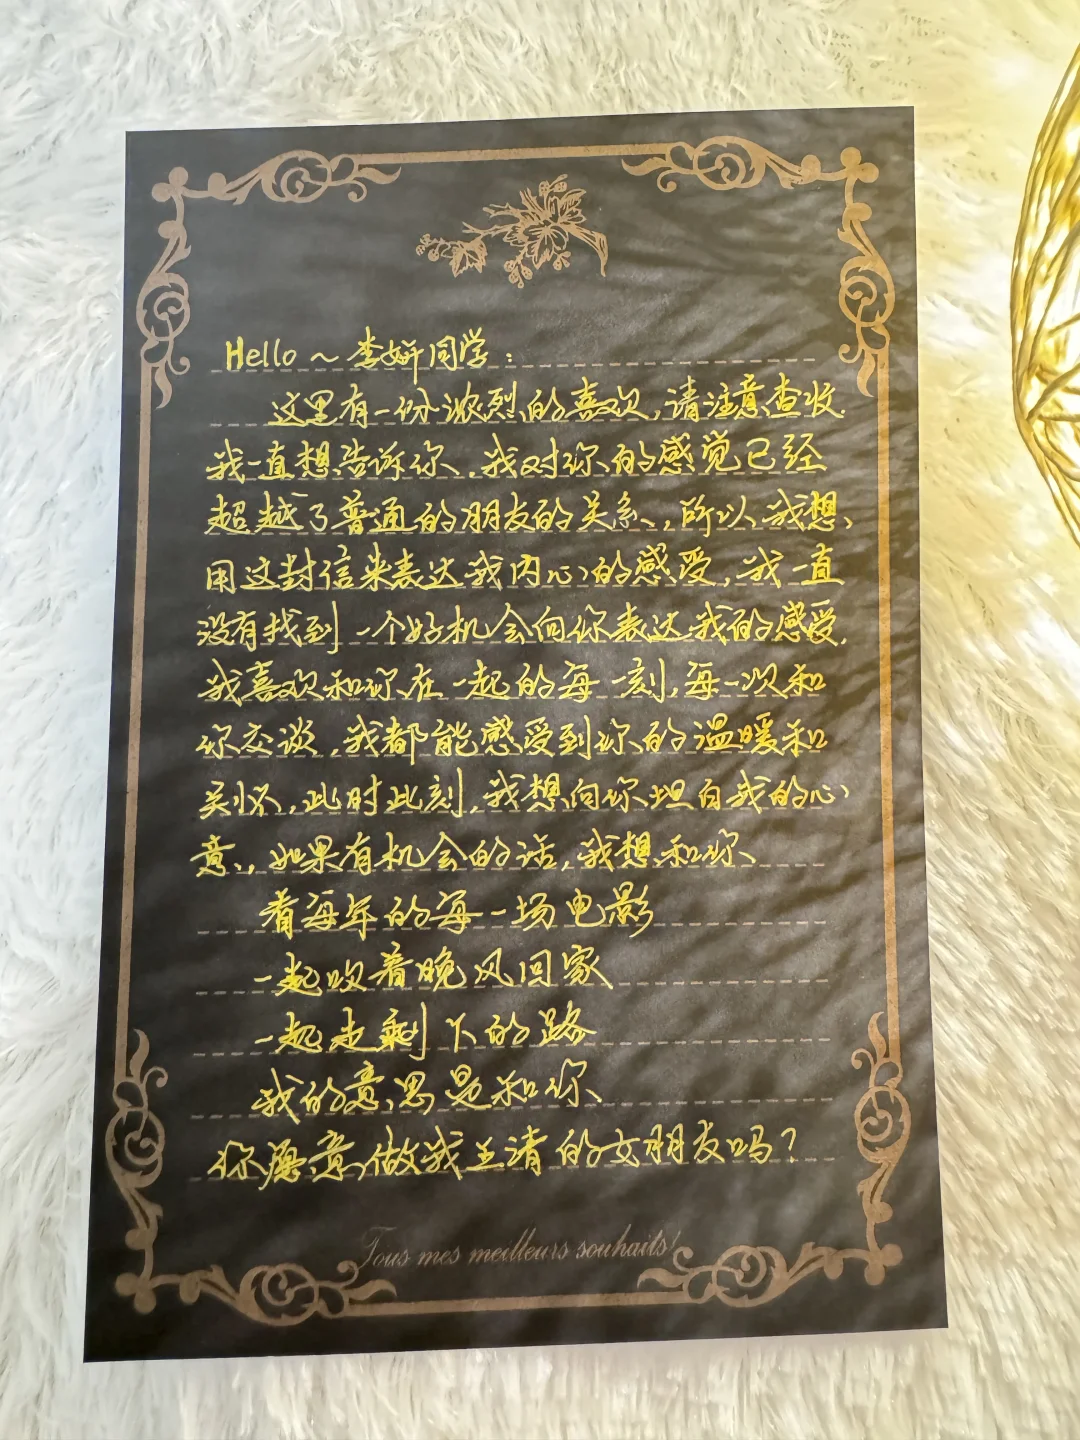 Hello ~ 李妍同学：
这里有一份浓烈的喜欢，请注意查收.
我一直想告诉你，我对你的感觉已经
超越了普通的朋友的关系，所以我想
用这封信来表达我内心的感受，我一直
没有找到一个好机会向你表达我的感受.
我喜欢和你在一起的每一刻，每一次和
你交谈，我都能感受到你的温暖和
关怀，此时此刻，我想向你坦白我的心
意，如果有机会的话，我想和你
看每年的每一场电影
一起吹着晚风回家
一起走剩下的路
我的意思是和你
你愿意做我王清的女朋友吗？
Tous mes meilleurs souhaits!